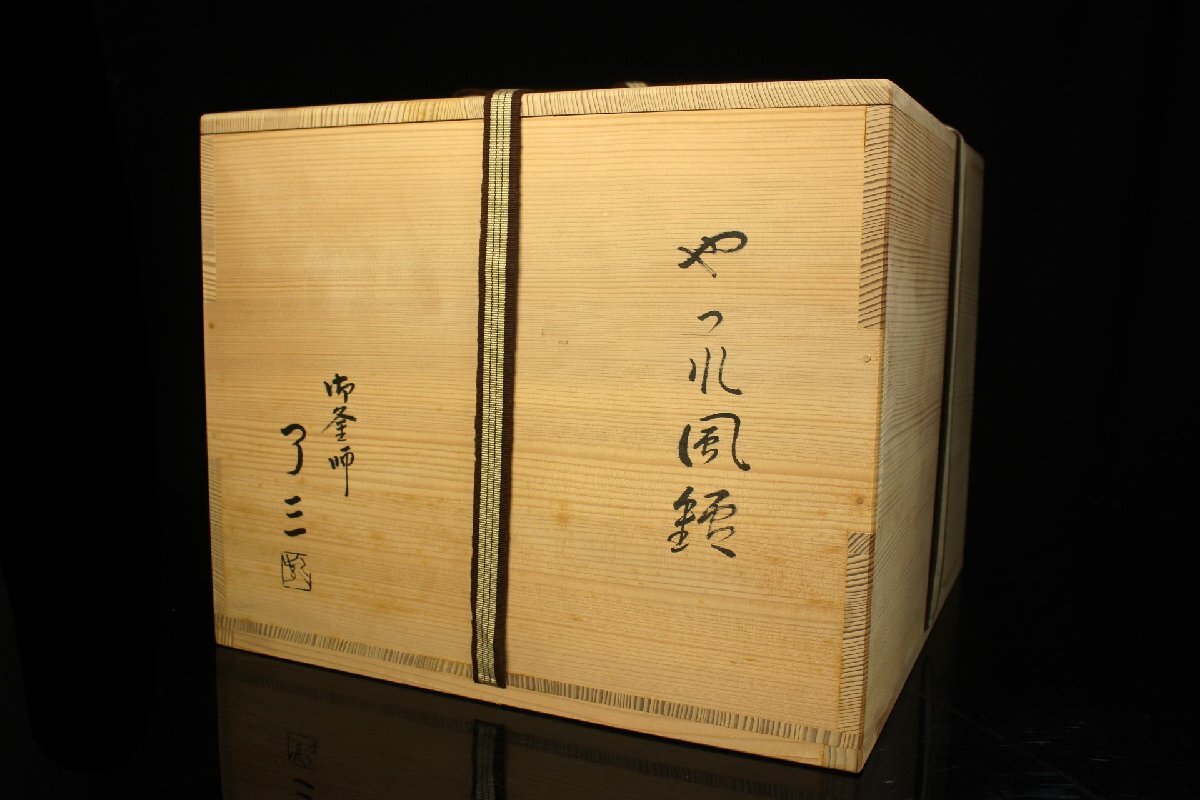 やつれ風鑪
御釜師
了三